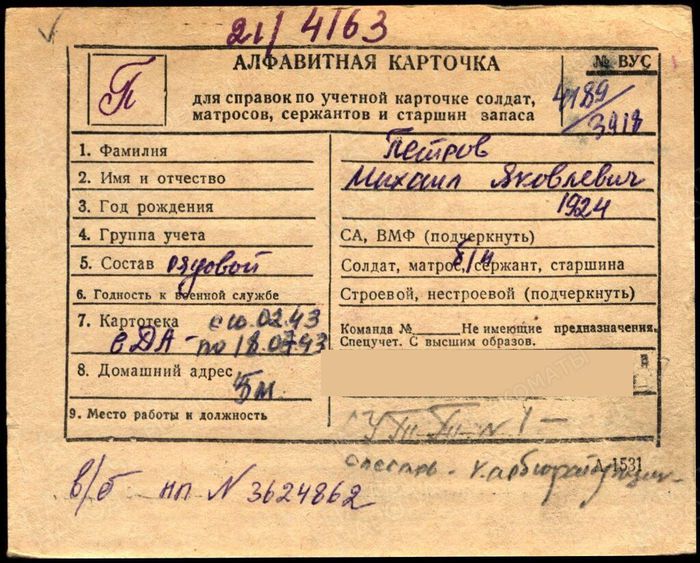 21/4163
АЛФАВИТНАЯ КАРТОЧКА
№ ВУС
П
для справок по учетной карточке солдат,
матросов, сержантов и старшин запаса
4189/3918
1. Фамилия Петров
2. Имя и отчество Михаил Яковлевич
3. Год рождения 1924
4. Группа учета СА, ВМФ (подчеркнуть)
5. Состав рядовой Солдат, матрос, сержант, старшина
б/н
6. Годность к военной службе Строевой, нестроевой (подчеркнуть)
7. Картотека с 10.02.43
в ДА - по 18.07.43
Команда №______ Не имеющие предназначения.
Спецучет. С высшим образов.
8. Домашний адрес
5м.
9. Место работы и должность
А-1531
слесарь -
в/б нп N 3624862